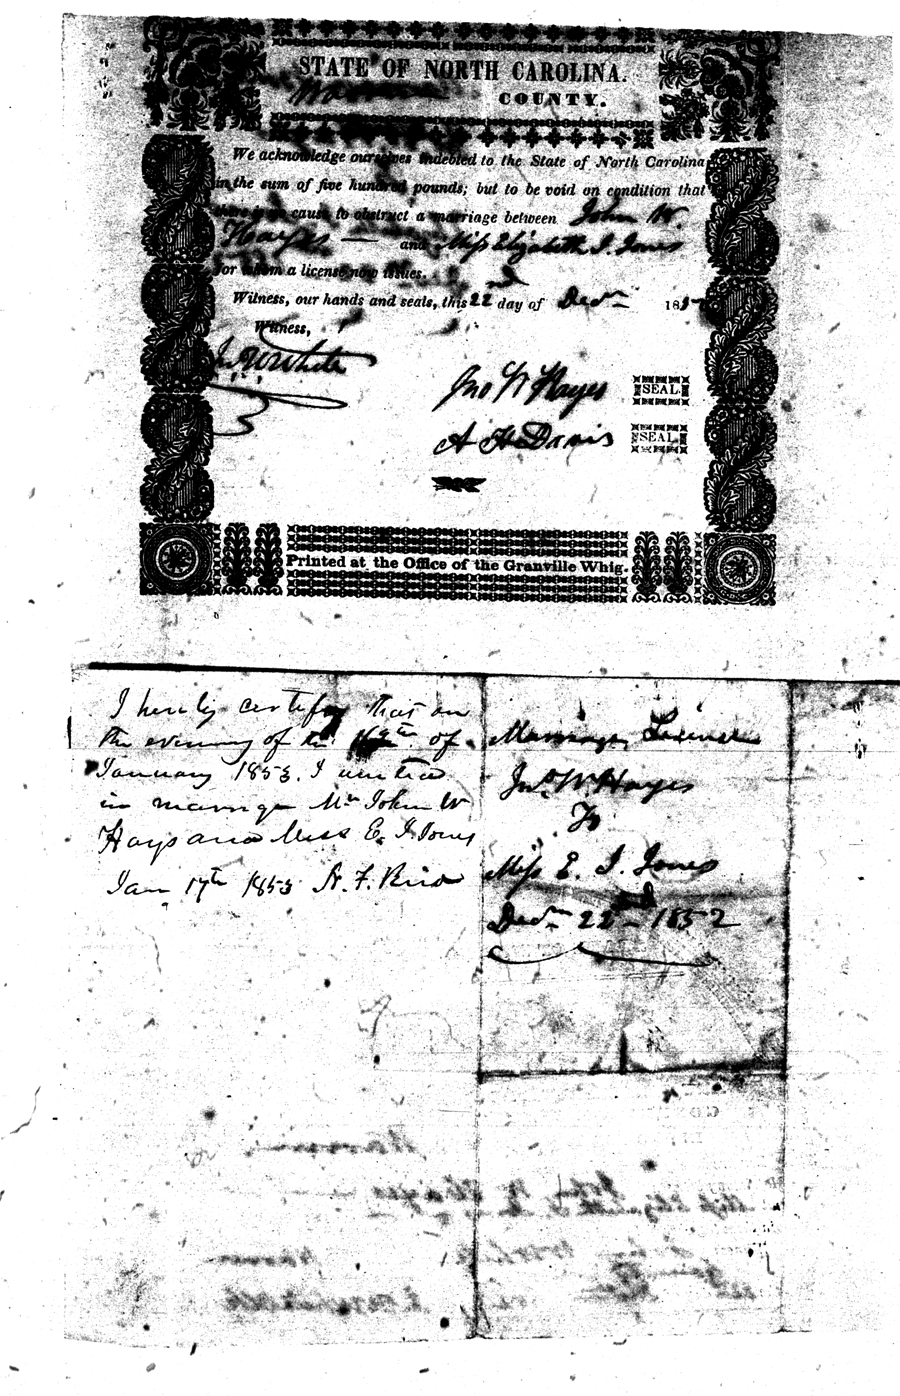 STATE OF NORTH CAROLINA.
Warren COUNTY.
We acknowledge ourselves indebted to the State of North Carolina
in the sum of five hundred pounds; but to be void on condition that
cause to obstruct a marriage between John W.
Hayes — and Miss Elizabeth I. Jones
for whom a license now issues.
Witness, our hands and seals, this 22nd day of Decm 185
Witness,
White
Jno W Hayes SEAL.
A H Davis SEAL.
Printed at the Office of the Granville Whig.
I hereby certify that on
the evening of the of
January 1853. I united
in marriage Mr John W
Hays and Miss E. I. Jones
Jan 17th 1853 
Marriage License
Jno. W. Hayes
To
Miss E. I. Jones
Decm 22nd 1852